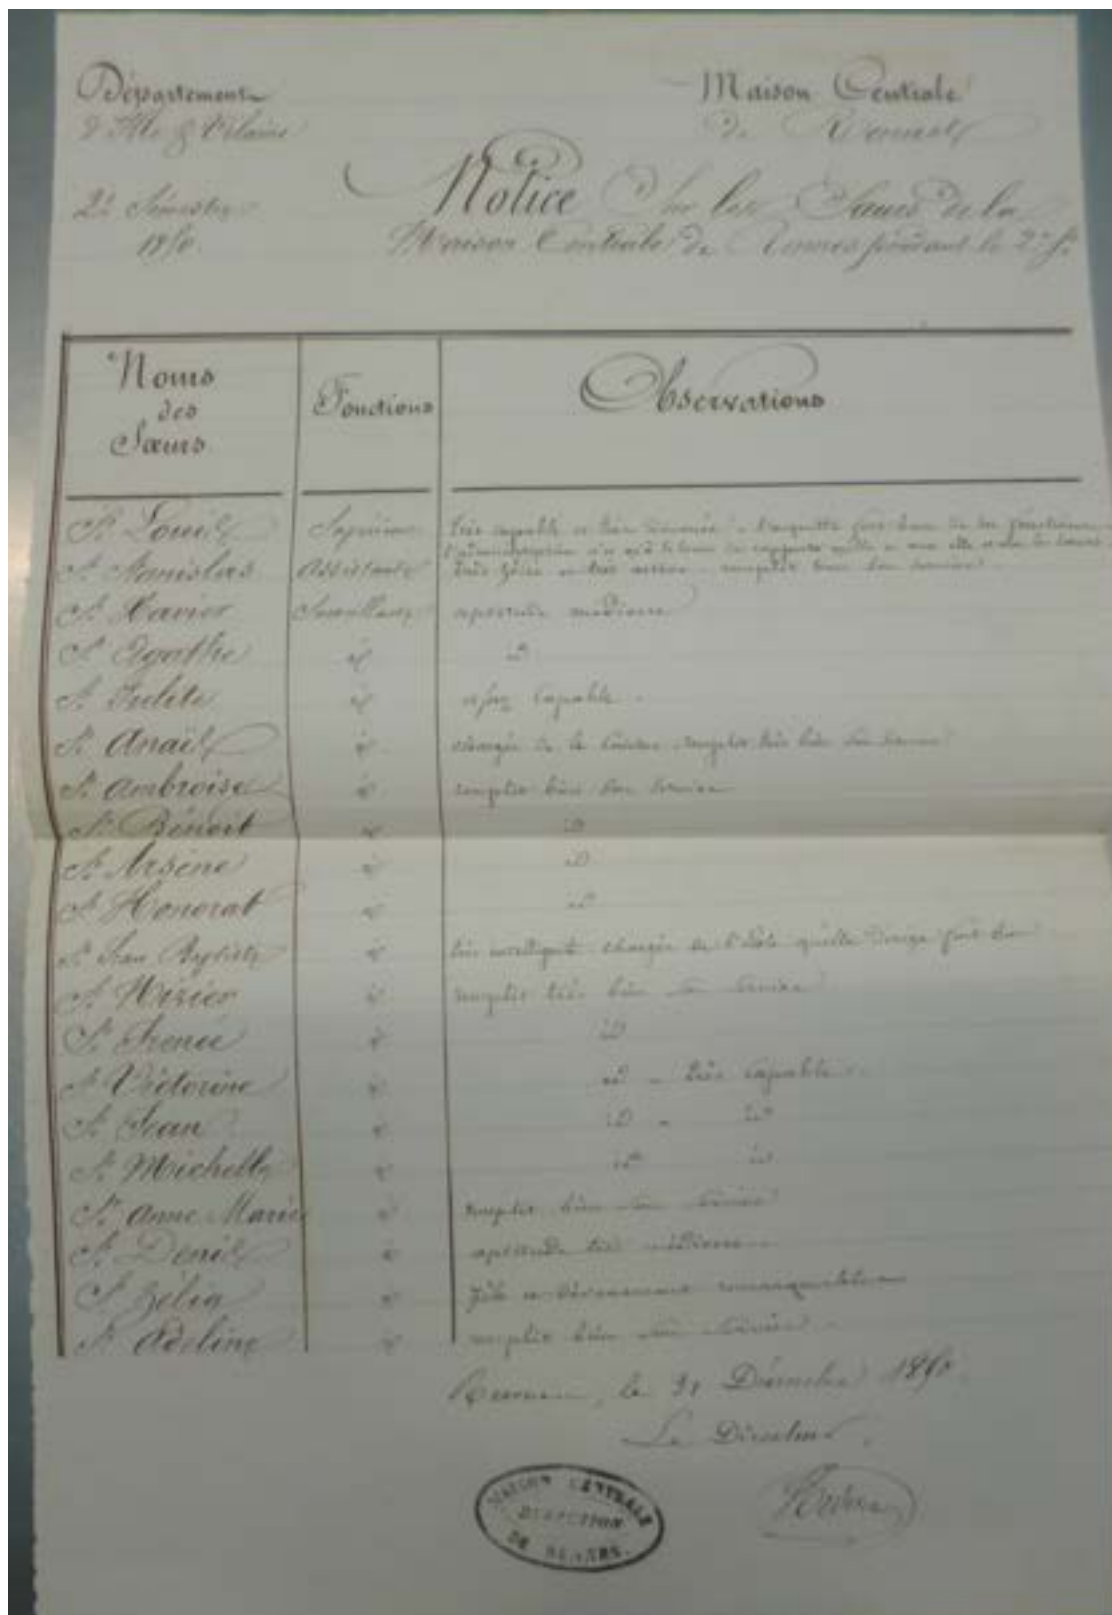 Département Maison Centrale
d'Ille & Vilaine de Rennes
2e Semestre Notice Sur les Sœurs de la
Maison Centrale de Rennes pendant le 2e
Noms des Sœurs Fonctions Observations
Sr Louis Supérieure très capable et très dévouée s'acquitte fort bien de ses fonctions
Sr Stanislas Assistante très zélée et très active remplit bien son service
Sr Xavier Surveillante aptitude médiocre
Sr Agathe id id
Sr Julite id assez capable
Sr Anaïs id chargée de la remplit très bien son service
Sr Ambroise id remplit bien son service
Sr Benoit id id
Sr Arsène id id
Sr Honorat id id
Sr Jean Baptiste id très intelligente chargée de l'école qu'elle dirige fort bien
Sr Nizier id remplit très bien son service
Sr Irenée id id
Sr Victorine id id – très capable
Sr Jean id id – id
Sr Michelle id id id
Sr Anne Marie id remplit bien son service
Sr Denis id aptitude très médiocre
Sr Zélia id zèle et dévouement remarquables
Sr Adeline id remplit bien son service
Rennes, le 31 Décembre
Le Directeur
MAISON CENTRALE
DIRECTION
DE RENNES.